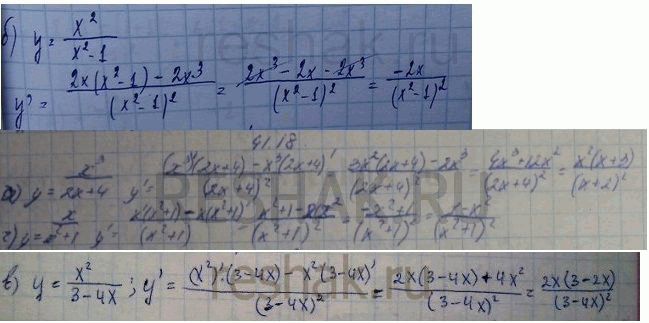 б) y = x² / (x² - 1)
y' = (2x(x² - 1) - 2x³) / (x² - 1)² = (2x³ - 2x - 2x³) / (x² - 1)² = (-2x) / (x² - 1)²
41.18.
а) y = x³ / (2x+4) y' = ((x³)'(2x+4) - x³(2x+4)') / (2x+4)² = (3x²(2x+4) - 2x³) / (2x+4)² = (4x³+12x²) / (2x+4)² = x²(x+3) / (x+2)²
г) y = x / (x²+1) y' = (x'(x²+1) - x(x²+1)') / (x²+1)² = (x²+1-2x²) / (x²+1)² = (-x²+1) / (x²+1)² = (1-x²) / (x²+1)²
в) y = x² / (3-4x) ; y' = ((x²)'·(3-4x) - x²(3-4x)') / (3-4x)² = (2x(3-4x) + 4x²) / (3-4x)² = 2x(3-2x) / (3-4x)²
reshak.ru
RESHAK.RU
reshak.ru